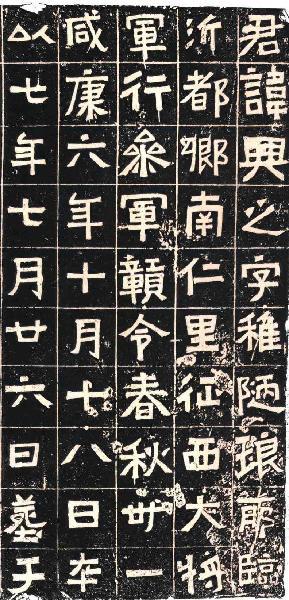 君諱興之字稚陋琅耶臨
沂都鄉南仁里征西大將
軍行參軍贛令春秋卅一
咸康六年十月十八日卒
以七年七月廿六日葬于